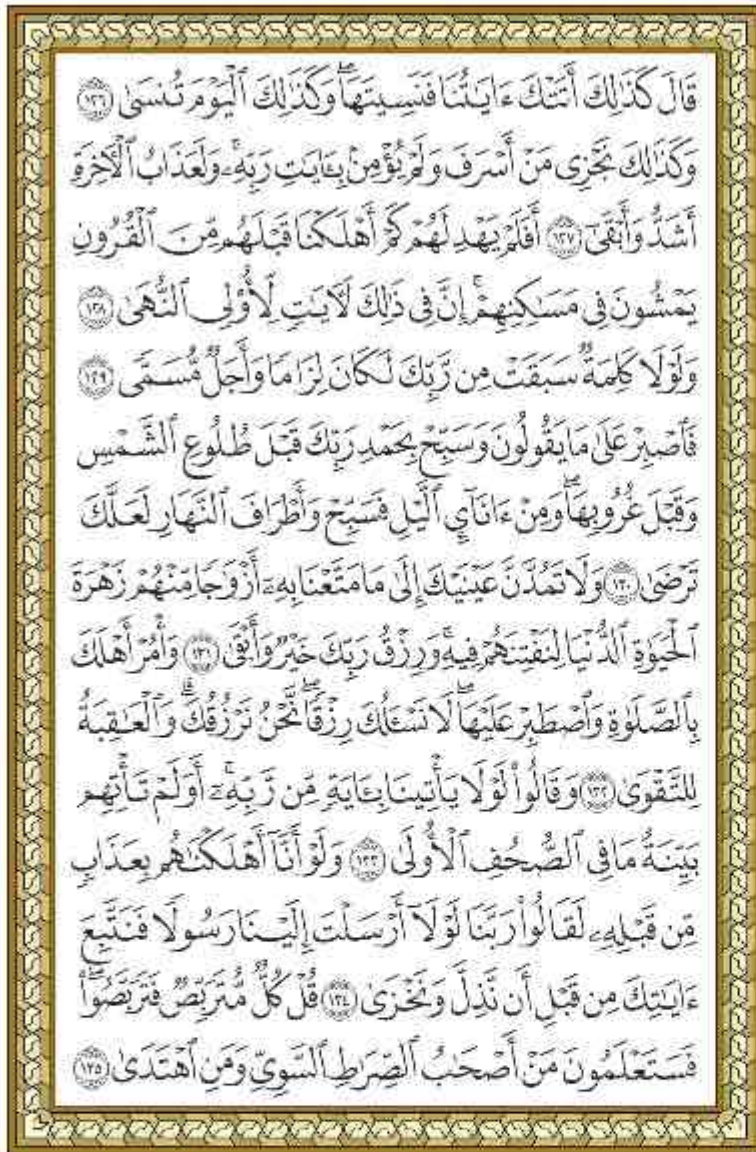 قَالَ كَذَٰلِكَ أَتَتْكَ ءَايَٰتُنَا فَنَسِيتَهَا ۖ وَكَذَٰلِكَ ٱلْيَوْمَ تُنسَىٰ ١٢٦
وَكَذَٰلِكَ نَجْزِى مَنْ أَسْرَفَ وَلَمْ يُؤْمِنۢ بِـَٔايَٰتِ رَبِّهِۦ ۚ وَلَعَذَابُ ٱلْـَٔاخِرَةِ
أَشَدُّ وَأَبْقَىٰٓ ١٢٧ أَفَلَمْ يَهْدِ لَهُمْ كَمْ أَهْلَكْنَا قَبْلَهُم مِّنَ ٱلْقُرُونِ
يَمْشُونَ فِى مَسَٰكِنِهِمْ ۗ إِنَّ فِى ذَٰلِكَ لَـَٔايَٰتٍ لِّأُو۟لِى ٱلنُّهَىٰ ١٢٨
وَلَوْلَا كَلِمَةٌ سَبَقَتْ مِن رَّبِّكَ لَكَانَ لِزَامًا وَأَجَلٌ مُّسَمًّى ١٢٩
فَٱصْبِرْ عَلَىٰ مَا يَقُولُونَ وَسَبِّحْ بِحَمْدِ رَبِّكَ قَبْلَ طُلُوعِ ٱلشَّمْسِ
وَقَبْلَ غُرُوبِهَا ۖ وَمِنْ ءَانَآئِ ٱلَّيْلِ فَسَبِّحْ وَأَطْرَافَ ٱلنَّهَارِ لَعَلَّكَ
تَرْضَىٰ ١٣٠ وَلَا تَمُدَّنَّ عَيْنَيْكَ إِلَىٰ مَا مَتَّعْنَا بِهِۦٓ أَزْوَٰجًا مِّنْهُمْ زَهْرَةَ
ٱلْحَيَوٰةِ ٱلدُّنْيَا لِنَفْتِنَهُمْ فِيهِ ۚ وَرِزْقُ رَبِّكَ خَيْرٌ وَأَبْقَىٰ ١٣١ وَأْمُرْ أَهْلَكَ
بِٱلصَّلَوٰةِ وَٱصْطَبِرْ عَلَيْهَا ۖ لَا نَسْـَٔلُكَ رِزْقًا ۖ نَّحْنُ نَرْزُقُكَ ۗ وَٱلْعَٰقِبَةُ
لِلتَّقْوَىٰ ١٣٢ وَقَالُوا۟ لَوْلَا يَأْتِينَا بِـَٔايَةٍ مِّن رَّبِّهِۦٓ ۚ أَوَلَمْ تَأْتِهِم
بَيِّنَةُ مَا فِى ٱلصُّحُفِ ٱلْأُولَىٰ ١٣٣ وَلَوْ أَنَّآ أَهْلَكْنَٰهُم بِعَذَابٍ
مِّن قَبْلِهِۦ لَقَالُوا۟ رَبَّنَا لَوْلَآ أَرْسَلْتَ إِلَيْنَا رَسُولًا فَنَتَّبِعَ
ءَايَٰتِكَ مِن قَبْلِ أَن نَّذِلَّ وَنَخْزَىٰ ١٣٤ قُلْ كُلٌّ مُّتَرَبِّصٌ فَتَرَبَّصُوا۟ ۖ
فَسَتَعْلَمُونَ مَنْ أَصْحَٰبُ ٱلصِّرَٰطِ ٱلسَّوِىِّ وَمَنِ ٱهْتَدَىٰ ١٣٥